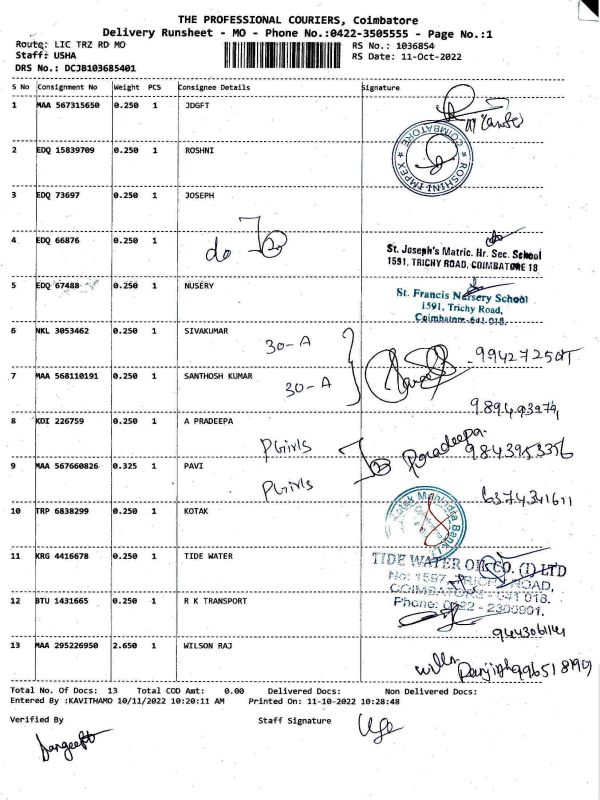 THE PROFESSIONAL COURIERS, Coimbatore
Delivery Runsheet - MO - Phone No.:0422-3505555 - Page No.:1
Route: LIC TRZ RD MO RS No.: 1036854
Staff: USHA RS Date: 11-Oct-2022
DRS No.: DCJB103685401
S No Consignment No Weight PCS Consignee Details Signature
1 MAA 567315650 0.250 1 JDGFT
2 EDQ 15839709 0.250 1 ROSHNI
COIMBATORE
ROSHINI IMPEX
3 EDQ 73697 0.250 1 JOSEPH
do
4 EDQ 66876 0.250 1
St. Joseph's Matric. Hr. Sec. School
1591, TRICHY ROAD, COIMBATORE 18
5 EDQ 67488 0.250 1 NUSERY
St. Francis Nursery School
1591, Trichy Road,
Coimbatore-641 018.
6 NKL 3053462 0.250 1 SIVAKUMAR
30-A
7 MAA 568110191 0.250 1 SANTHOSH KUMAR
30-A
8 KDI 226759 0.250 1 A PRADEEPA
PGirls Pradeepa. 9843953356
9 MAA 567660826 0.325 1 PAVI
PGirls 6374341611
10 TRP 6838299 0.250 1 KOTAK
Kotak Mahindra Bank
11 KRG 4416678 0.250 1 TIDE WATER
TIDE WATER OIL CO. (I) LTD
No: 1597, TRICHY ROAD,
COIMBATORE - 641 018.
Phone: 0422 - 2300901.
12 BTU 1431665 0.250 1 R K TRANSPORT
13 MAA 295226950 2.650 1 WILSON RAJ
Total No. Of Docs: 13 Total COD Amt: 0.00 Delivered Docs: Non Delivered Docs:
Entered By :KAVITHAMO 10/11/2022 10:20:11 AM Printed On: 11-10-2022 10:28:48
Verified By Staff Signature